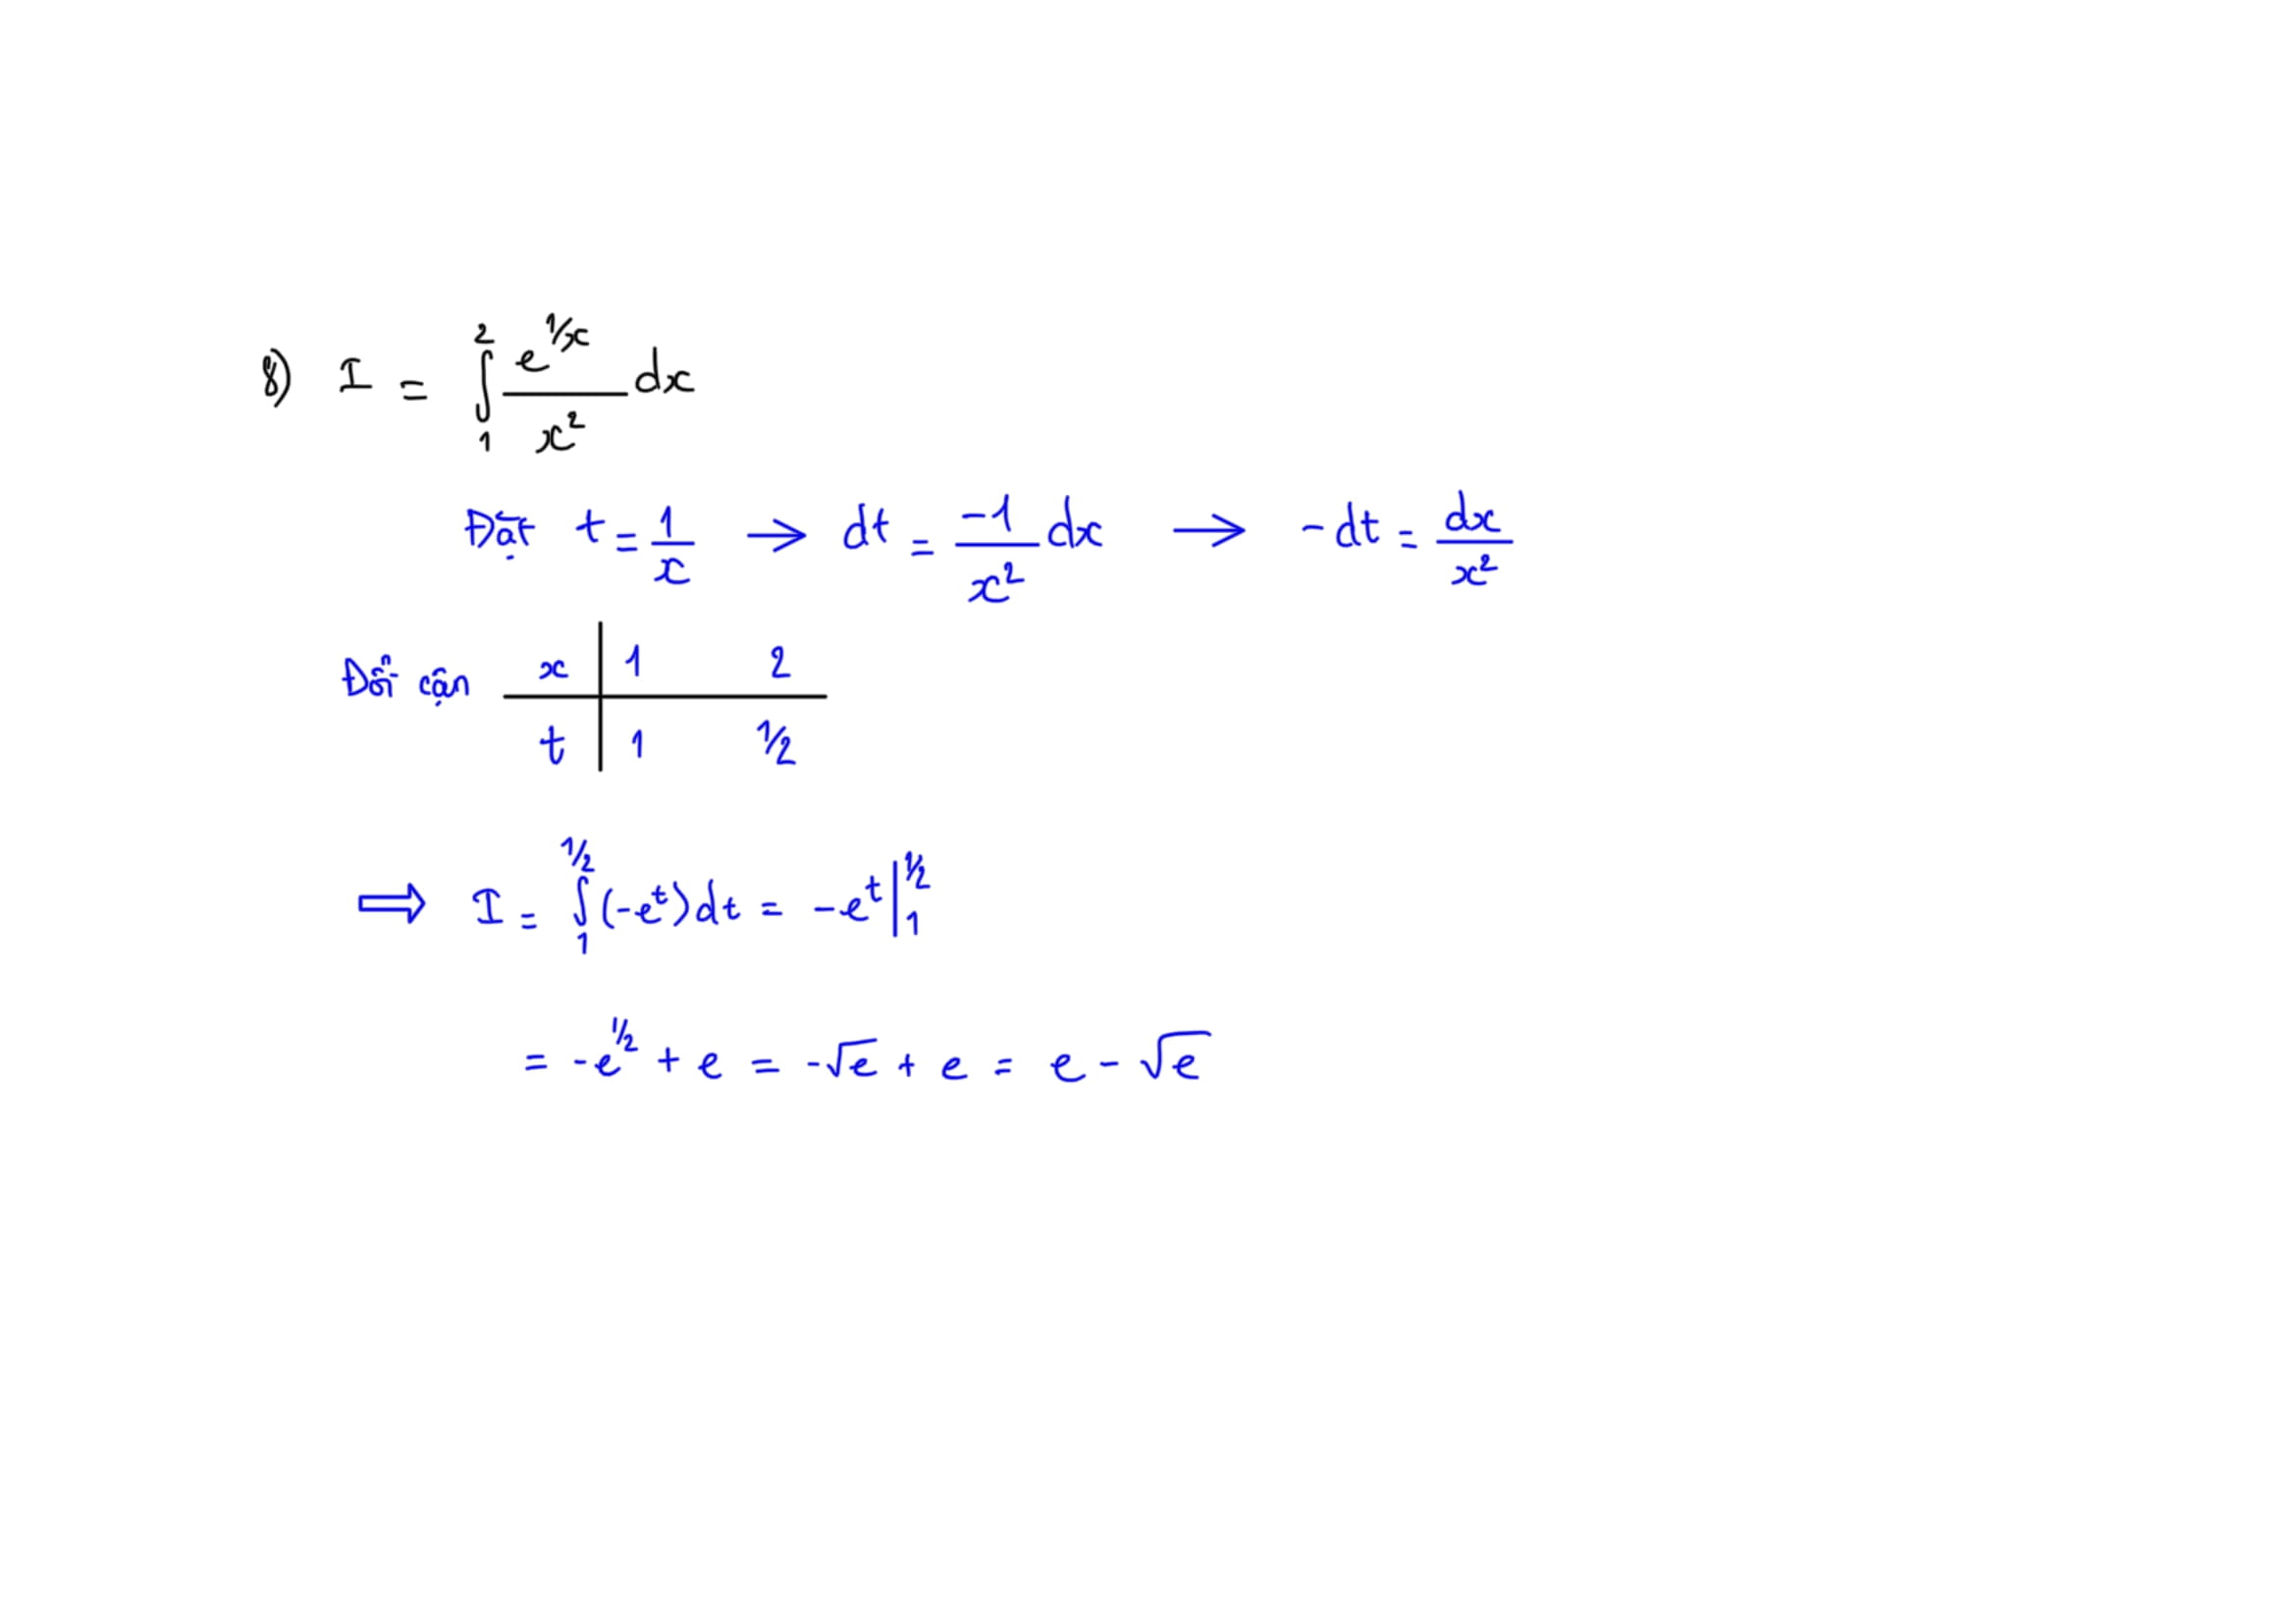 8) I = ∫₁² e^(1/x) / x² dx
Đặt t = 1/x → dt = -1/x² dx → -dt = dx/x²
Đổi cận x | 1 2
t | 1 1/2
⇒ I = ∫₁^(1/2) (-e^t) dt = -e^t |₁^(1/2)
= -e^(1/2) + e = -√e + e = e - √e